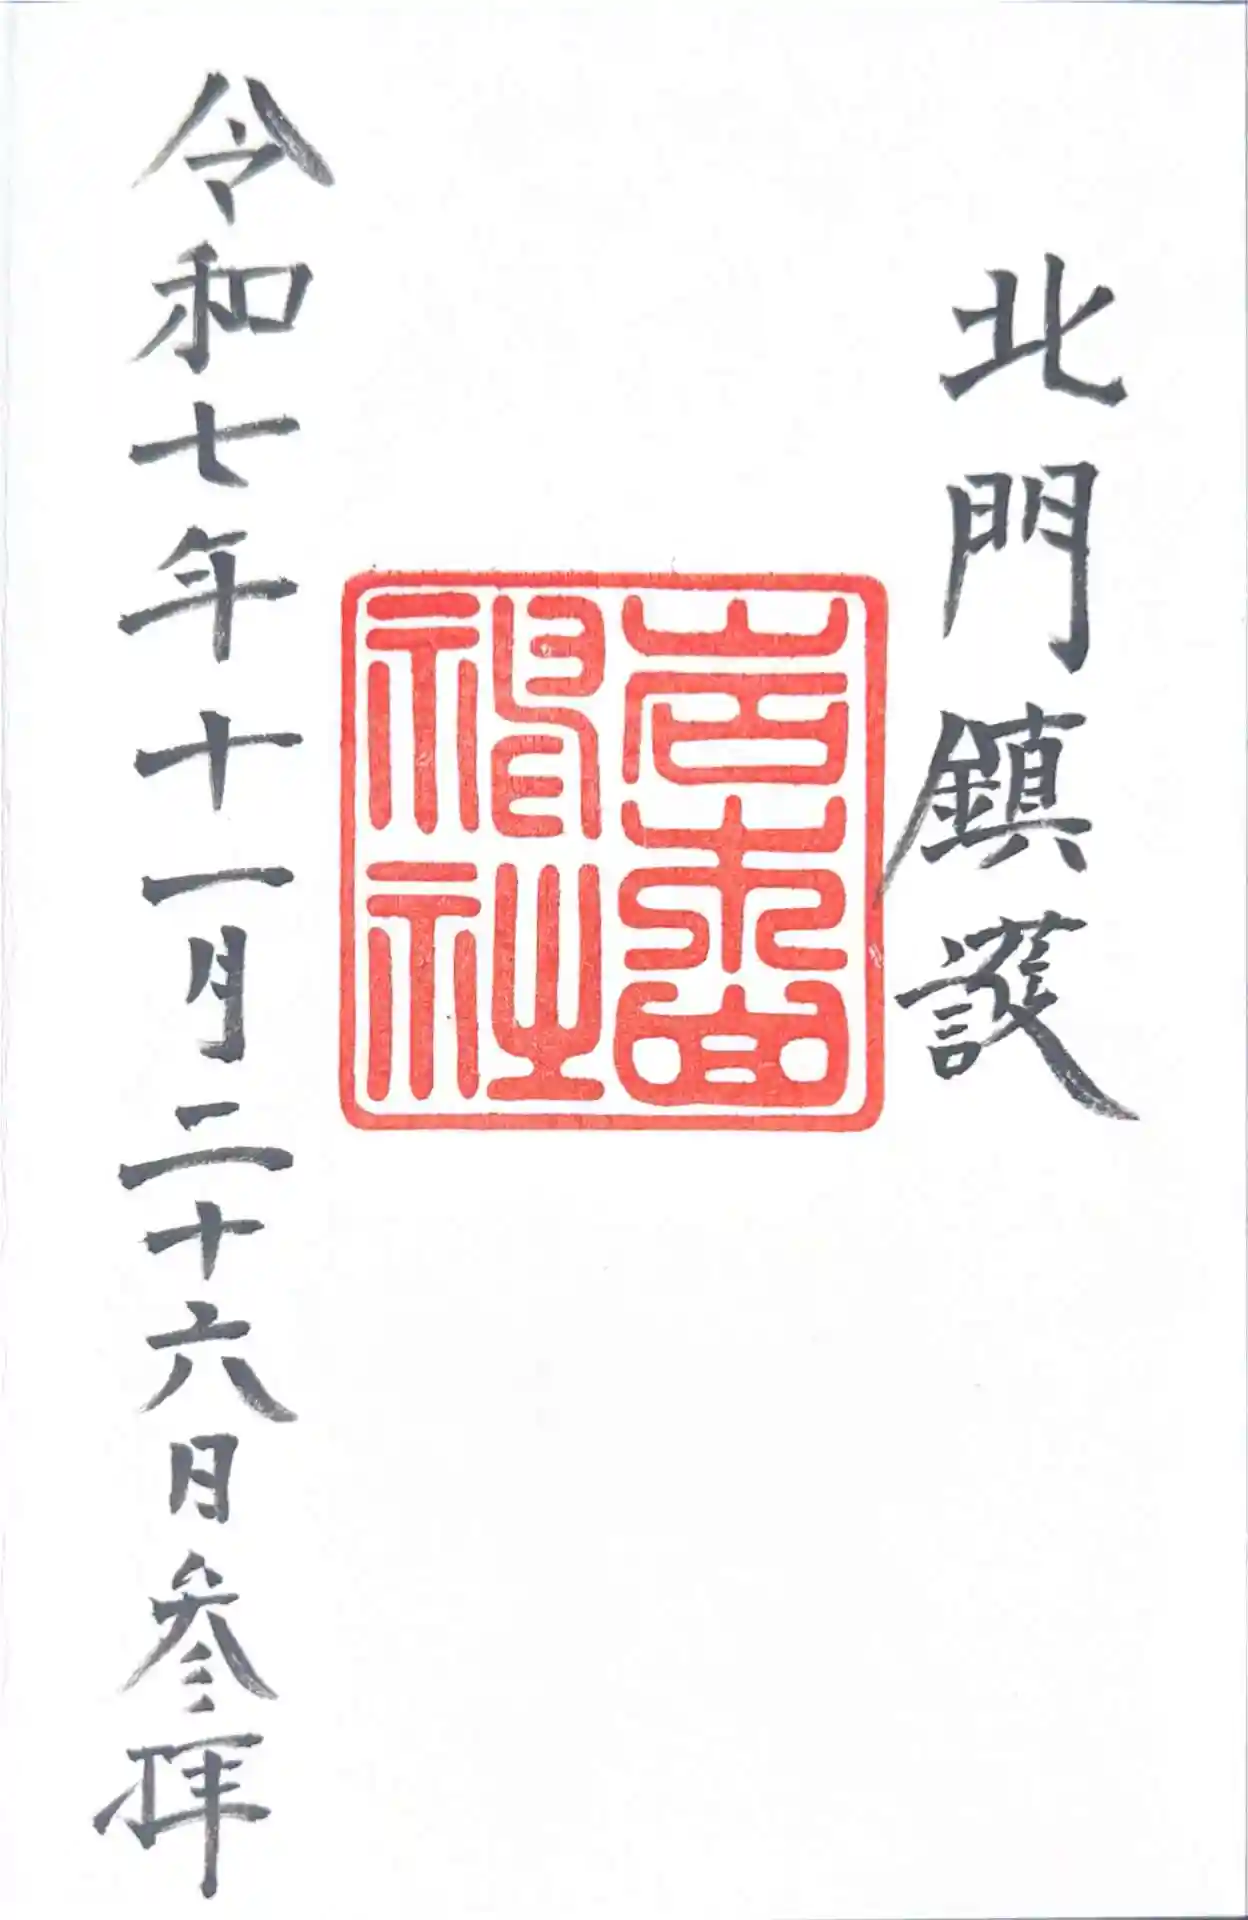 北門鎮護
岩木山
神社
令和七年十一月二十六日参拝